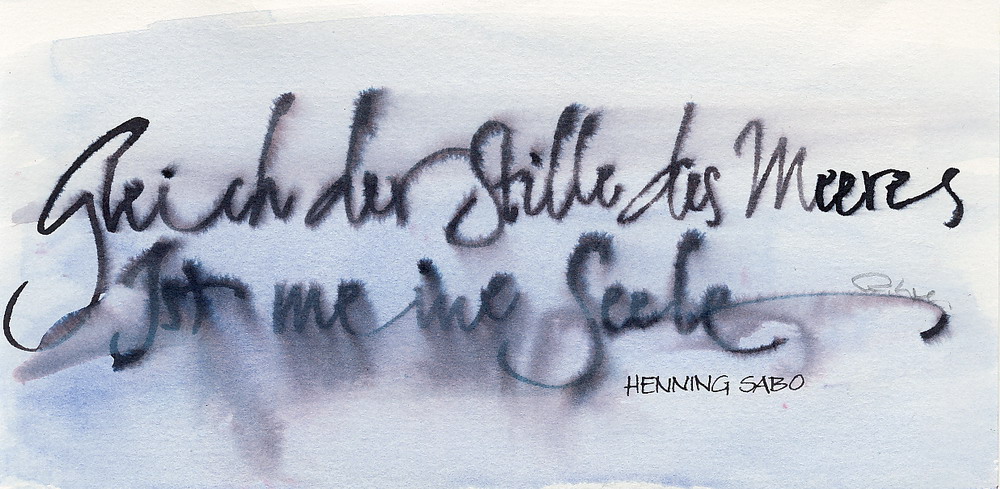 Gleich der Stille des Meeres
Ist meine Seele
HENNING SABO